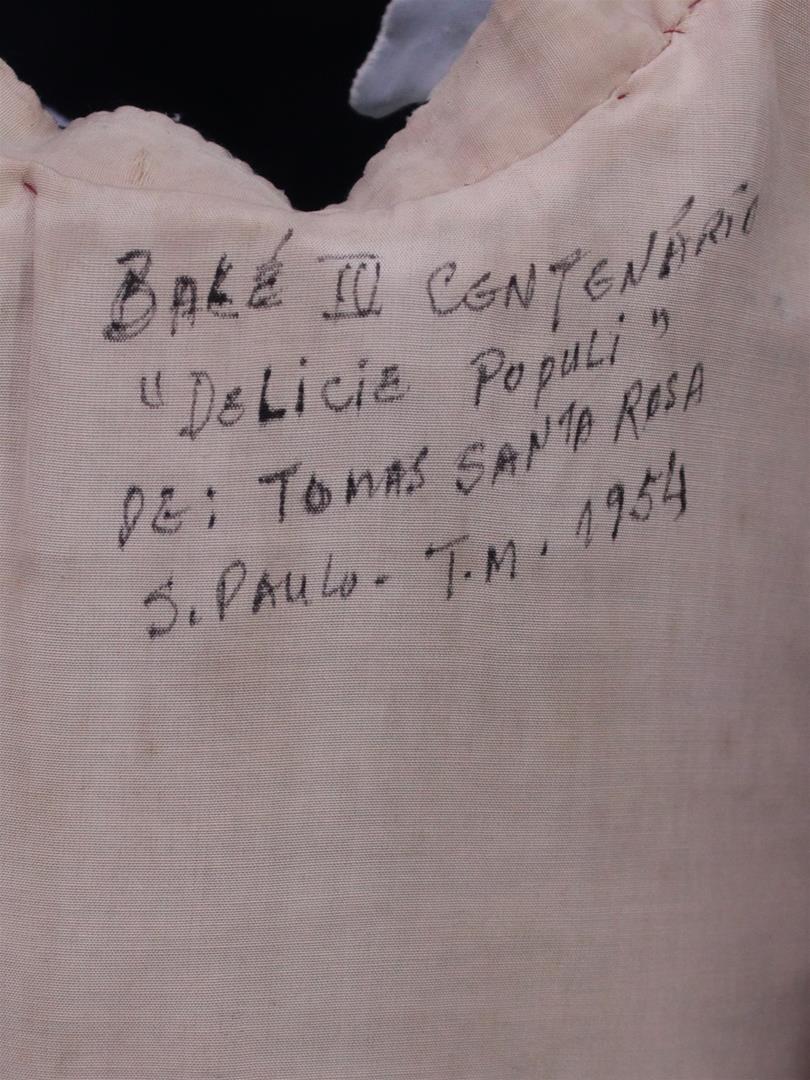 BALÉ IV CENTENÁRIO
"DELICIE POPULI"
DE: TOMAS SANTA ROSA
S. PAULO - T.M. 1954